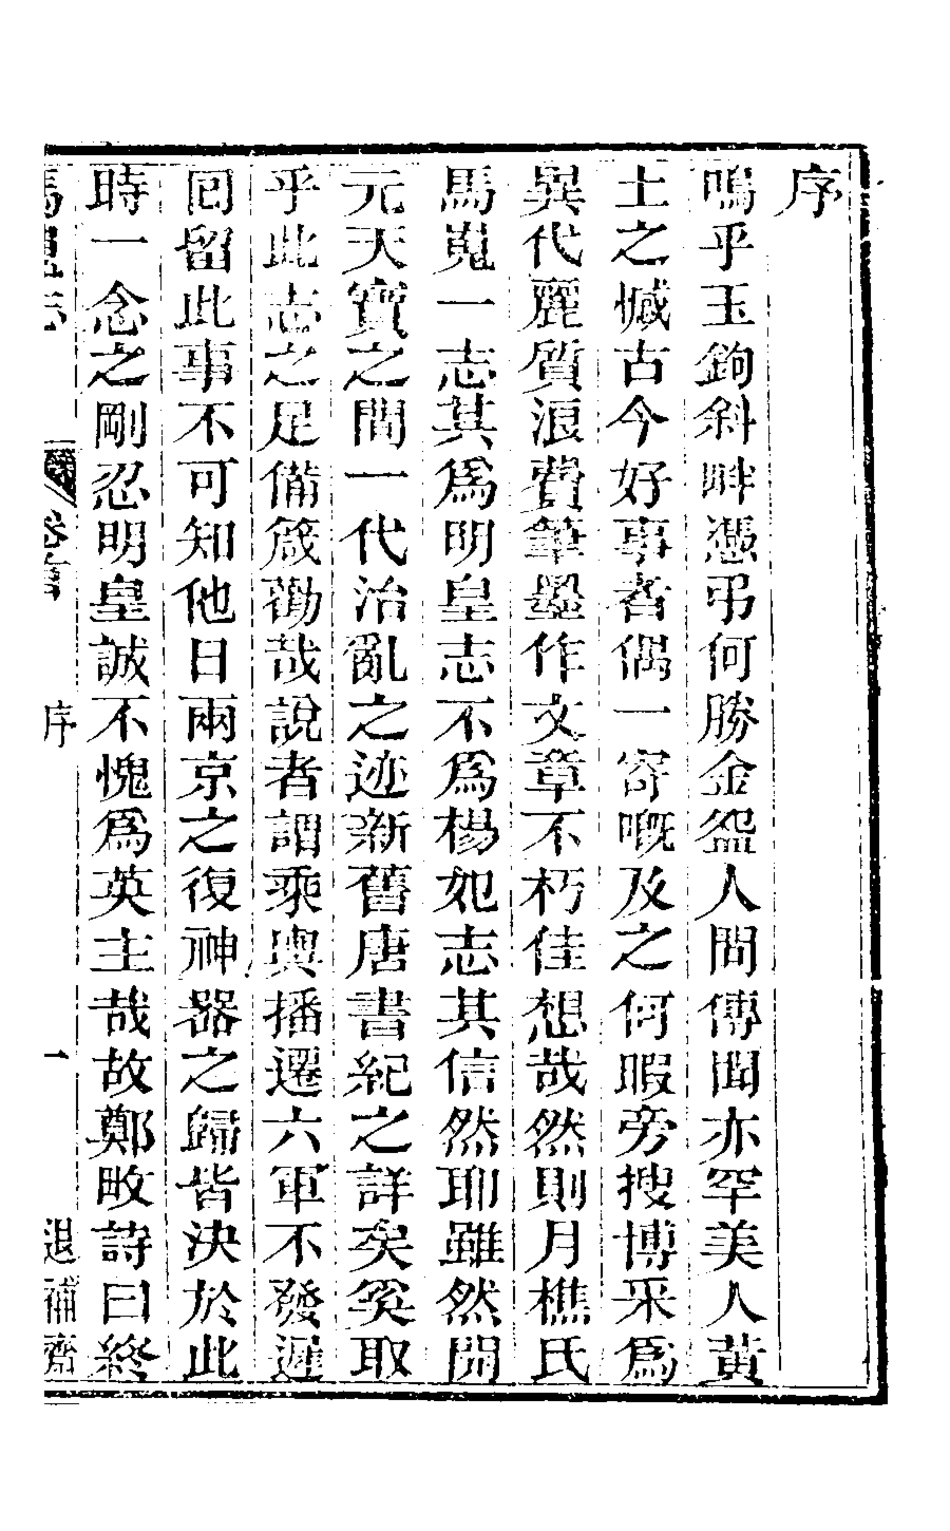 序
嗚乎玉鉤斜畔憑弔何勝金盌人間傳聞亦罕美人黃
土之憾古今好事者偶一寄嘅及之何暇旁搜博采爲
異代麗質浪費筆墨作文章不朽佳想哉然則月樵氏
馬嵬一志其爲明皇志不爲楊妃志其信然耶雖然開
元天寶之間一代治亂之迹新舊唐書紀之詳矣奚取
乎此志之足備箴勸哉說者謂乘輿播遷六軍不發遲
回留此事不可知他日兩京之復神器之歸皆決於此
時一念之剛忍明皇誠不愧爲英主哉故鄭畋詩曰終
馬嵬志 卷首 序 一 退補齋